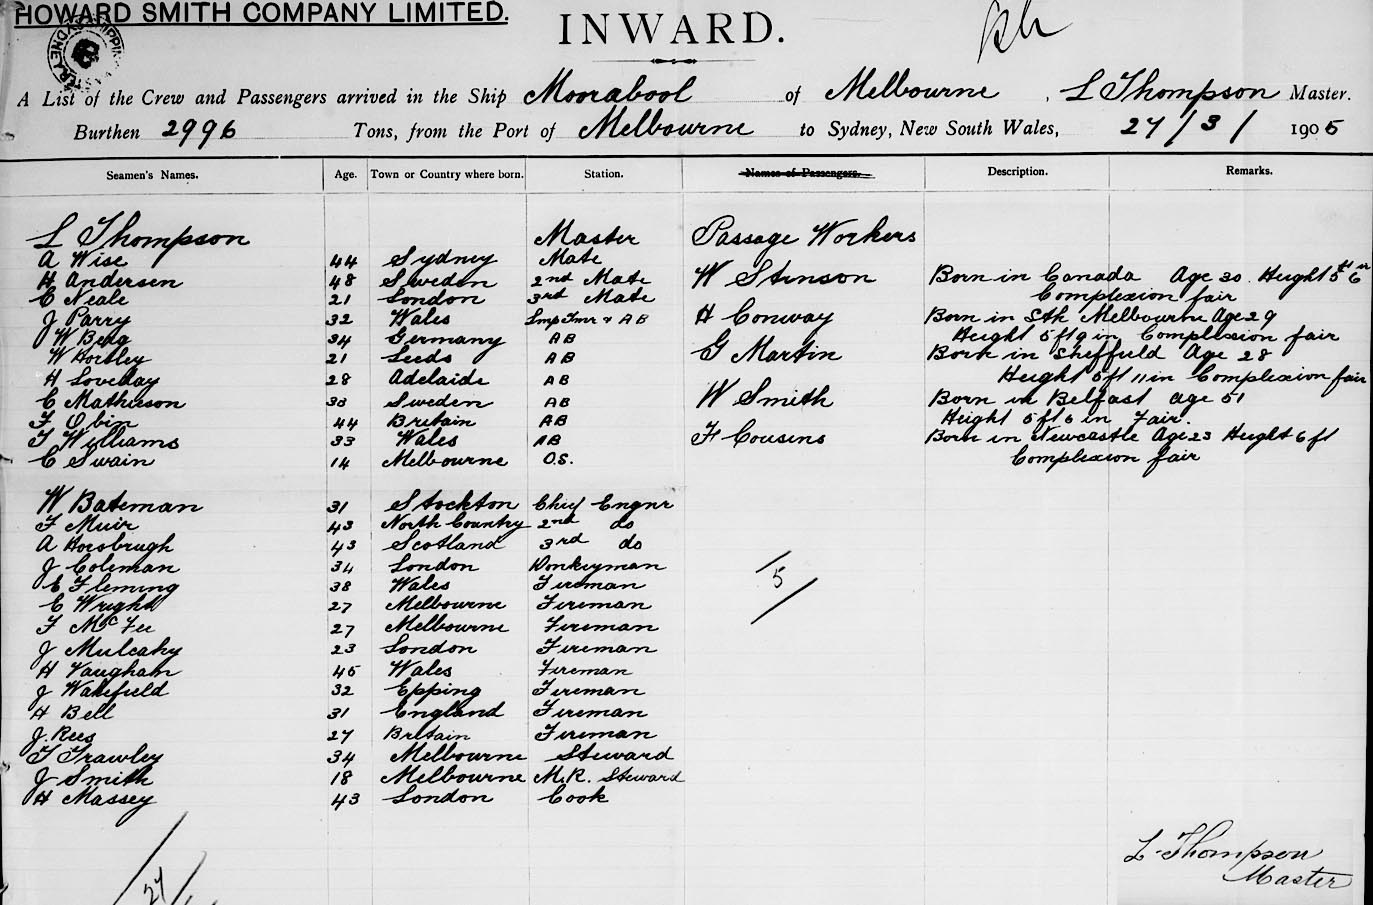 HOWARD SMITH COMPANY LIMITED.
INWARD.
A List of the Crew and Passengers arrived in the Ship Moorabool of Melbourne, L Thompson Master.
Burthen 2996 Tons, from the Port of Melbourne to Sydney, New South Wales, 27/3/ 1905
Seamen's Names. Age. Town or Country where born. Station. Names of Passengers. Description. Remarks.
L Thompson Master Passage Workers
A Wise 44 Sydney Mate
H Andersen 48 Sweden 2nd Mate W Stinson Born in Canada Age 30. Height 5ft 6in
C Neale 21 London 3rd Mate Complexion fair
J Parry 32 Wales Lmp Tmr & AB H Conway Born in Sth Melbourne Age 29
W Berg 34 Germany AB Height 5ft 9in Complexion fair
W Hortley 21 Leeds AB G Martin Born in Sheffield Age 28
H Loveday 28 Adelaide AB Height 5ft 11in Complexion fair
C Mathieson 38 Sweden AB W Smith Born in Belfast age 51
F Obin 44 Britain AB Height 5ft 6 in Fair.
T Williams 33 Wales AB F Cousins Born in Newcastle Age 23 Height 6ft
C Swain 14 Melbourne O.S. Complexion fair
W Bateman 31 Stockton Chief Engnr
F Muir 43 North Country 2nd do
A Horsbrugh 43 Scotland 3rd do
J Coleman 34 London Donkeyman
E Fleming 38 Wales Fireman
E Wright 27 Melbourne Fireman
F McFee 27 Melbourne Fireman
J Mulcahy 23 London Fireman
H Vaugham 45 Wales Fireman
J Wakefield 32 Epping Fireman
H Bell 31 England Fireman
J. Rees 27 Britain Fireman
T Frawley 34 Melbourne Steward
J Smith 18 Melbourne M.R. Steward
H Massey 43 London Cook
5
27
L Thompson
Master